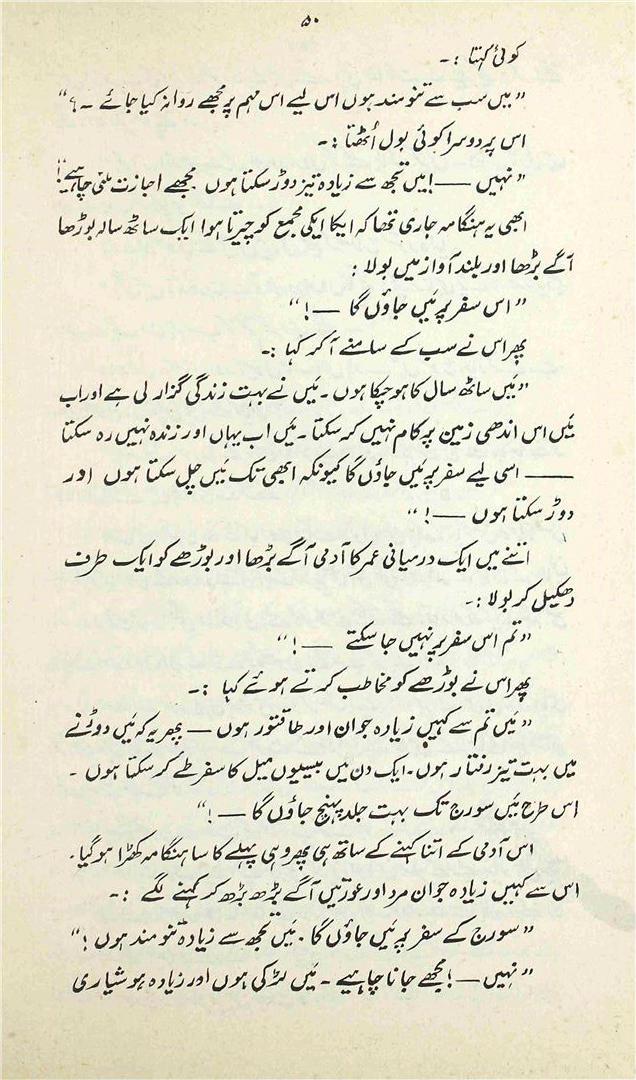 ۵۰
کوئی کہتا :۔
” میں سب سے تنومند ہوں اس لیے اس مہم پر مجھے روانہ کیا جائے ۔ ؟“
اس پر دوسرا کوئی بول اُٹھتا :۔
” نہیں —— ! میں تجھ سے زیادہ تیز دوڑ سکتا ہوں ۔ مجھے اجازت ملنی چاہیے۔!“
ابھی یہ ہنگامہ جاری تھا کہ ایکا ایکی مجمع کو چیرتا ہوا ایک ساٹھ سالہ بوڑھا
آگے بڑھا اور بلند آواز میں بولا :
” اس سفر پر مَیں جاؤں گا —— ! “
پھر اس نے سب کے سامنے آ کر کہا :۔
” مَیں ساٹھ سال کا ہو چکا ہوں ۔ مَیں نے بہت زندگی گزار لی ہے اور اب
مَیں اس اندھی زمین پر کام نہیں کر سکتا ۔ مَیں اب یہاں اور زندہ نہیں رہ سکتا
—— اسی لیے سفر پر مَیں جاؤں گا کیونکہ ابھی تک مَیں چل سکتا ہوں اور
دوڑ سکتا ہوں —— ! “
اتنے میں ایک درمیانی عمر کا آدمی آگے بڑھا اور بوڑھے کو ایک طرف
دھکیل کر بولا :۔
” تم اس سفر پر نہیں جا سکتے —— ! “
پھر اس نے بوڑھے کو مخاطب کرتے ہوئے کہا :۔
” مَیں تم سے کہیں زیادہ جوان اور طاقتور ہوں — پھر یہ کہ مَیں دوڑنے
میں بہت تیز رفتار ہوں ۔ ایک دن میں بیسیوں میل کا سفر طے کر سکتا ہوں ۔
اس طرح مَیں سورج تک بہت جلد پہنچ جاؤں گا —— ! “
اس آدمی کے اتنا کہنے کے ساتھ ہی پھر وہی پہلے کا سا ہنگامہ کھڑا ہو گیا ۔
اس سے کہیں زیادہ جوان مرد اور عورتیں آگے بڑھ بڑھ کر کہنے لگے :۔
” سورج کے سفر پر مَیں جاؤں گا ۔ مَیں تجھ سے زیادہ تنومند ہوں ! “
” نہیں — ! مجھے جانا چاہیے ۔ مَیں لڑکی ہوں اور زیادہ ہوشیاری